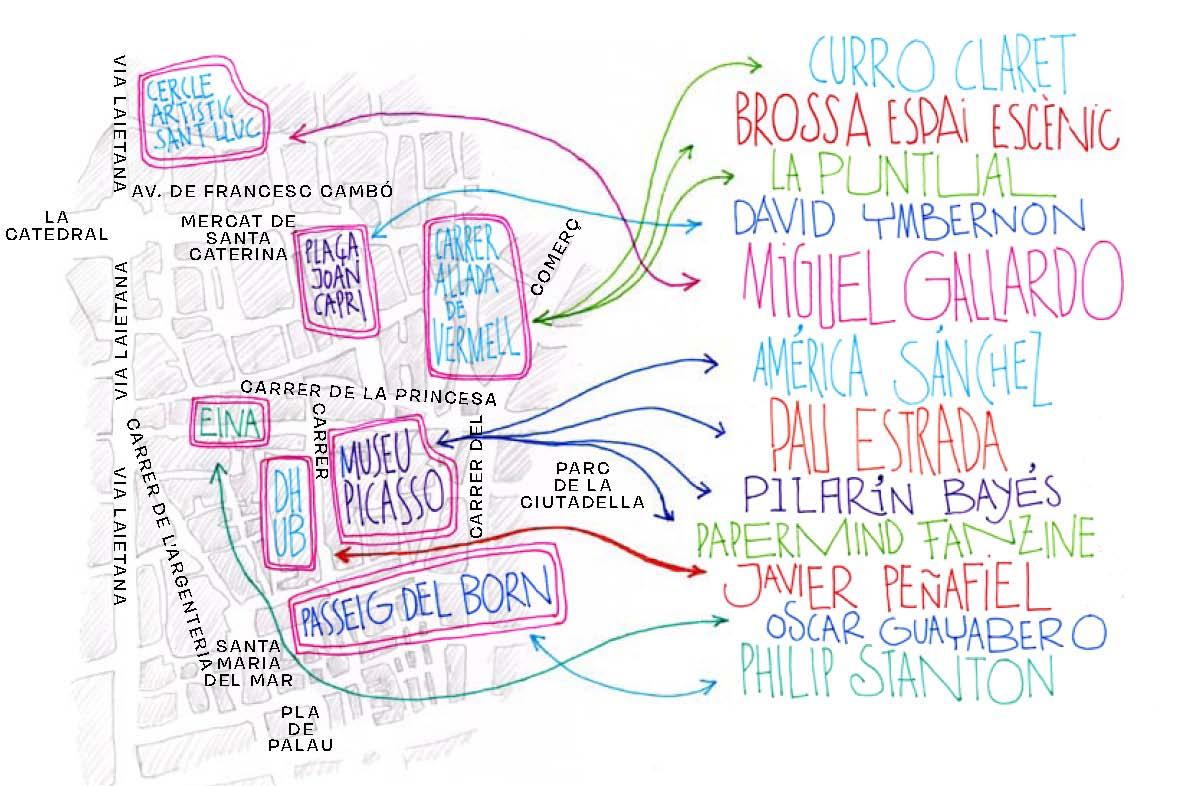 VIA LAIETANA
CERCLE
ARTISTIC
SANT LLUC
AV. DE FRANCESC CAMBÓ
LA
CATEDRAL
MERCAT DE
SANTA
CATERINA
PLAÇA
JOAN
CAPRI
CARRER
ALLADA
DE
VERMELL
COMERÇ
VIA LAIETANA
CARRER DE LA PRINCESA
EINA
CARRER
MUSEU
PICASSO
CARRER DEL
DH
UB
PARC
DE LA
CIUTADELLA
CARRER DE L'ARGENTERIA
VIA LAIETANA
PASSEIG DEL BORN
SANTA
MARIA
DEL MAR
PLA
DE
PALAU
CURRO CLARET
BROSSA ESPAi ESCÈNiC
LA PUNTUAL
DAVID YMBERNON
MiGUEL GALLARDO
AMÉRICA SÁNCHEZ
PAU ESTRADA
PILARíN BAYÉS
PAPERMIND FANZINE
JAVIER PEÑAFiEL
OSCAR GUAYABERO
PHILIP STANTON